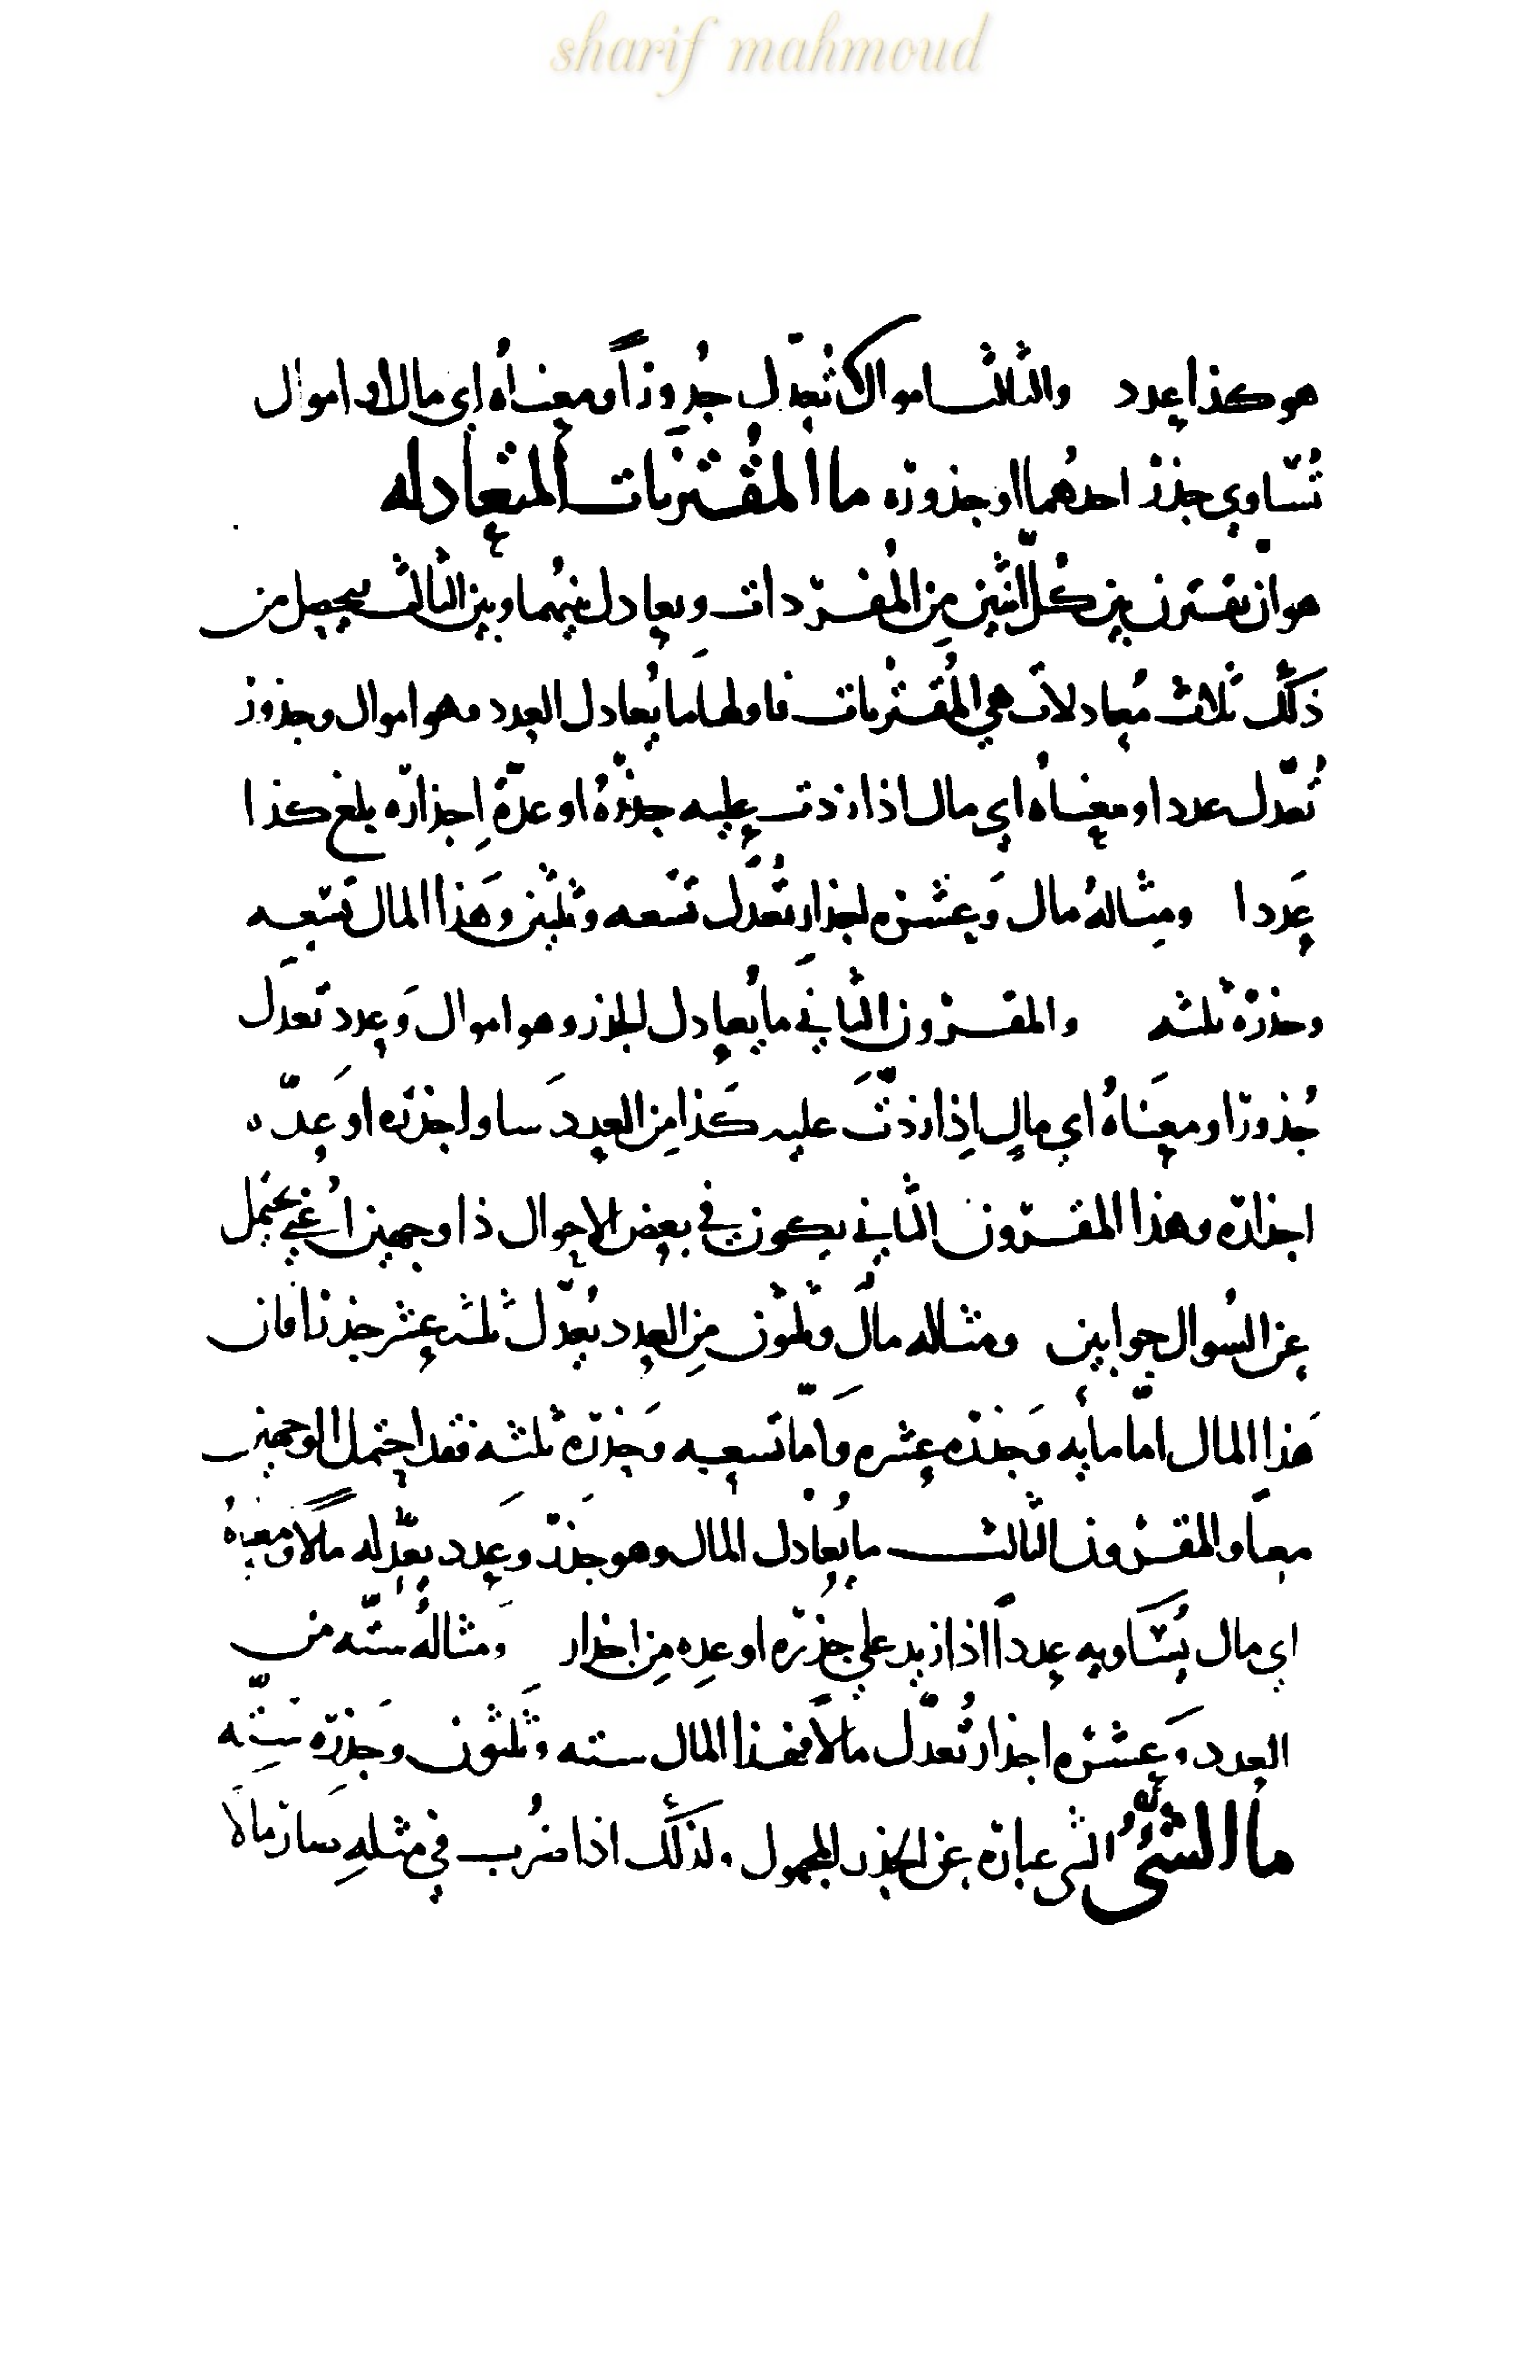 sharif mahmoud
هو كذا عدد والثالث اموالاً تُعدّل جُدورًا ومعناهُ اي مال او اموال
تُسّاوي جذر احدهما او جذوره ما المُقترنات المتعادله
هو ان يقترن بين كُلّ اثنين مِن المُفردات ويعادل بينهما وبين الثالث فيحصل من
ذَلك ثَلاث مُعادلات هي المُقترنات فاولها ما يُعادل العدد وهو اموال وجذور
تُعدّل عددا ومعناه اي مال اذا زدت عليه جذرهُ او عدّة اجذاره بلغ كذا
عَددا ومثالهُ مال وَعشرة اجذار تُعدّل تسعه وثلثين وَهذا المال تسعه
وجذره ثلثه والمقرون الثاني ما يُعادل الجذر وهو اموال وَعدد تعدل
جُذورًا ومعناهُ اي مال اِذا زدتَ عليه كَذا مِن العدد ساوا جذره او عدّه
اجذاره وهذا المقرون الثاني يكون في بعض الاحوال ذا وجهين اعُني يحتمل
عن السُوال جوابين ومثاله مال وثلثون مِن العدد يُعدّل ثلثه عشر جذرا فان
هَذا المال امّا مايه وَجذره عشره وَامّا تسعه وَجذره ثلثه فقد احتمل الوجهين
معا والمقرون الثالث ما يُعادل المال وهو جذر وعدد يعدّله مالًا ومعناهُ
اي مال يُسَاويه عددًا اذا زيد علي جُذره او عده مِن اجذار وَمثالهُ ستّه من
العدد وَعشره اجذار تُعدّل مالًا فهذا المال سته وثلثون وجذره ستّه
ما الشيُّ الشي عباره عن الجذر المجهول ولذلك اذا ضُرب في مثلهِ صار مالًا